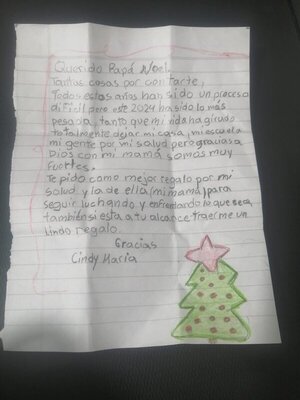 Querido Papá Noel
Tantas cosas por contarte,
Todos estos años han sido un proceso
dificil pero este 2024 ha sido lo más
pesada, tanto que mi vida ha girado
totalmente dejar mi casa, mi escuela
mi gente por mi salud pero gracias a
Dios con mi mamá somos muy
fuertes.
Te pido como mejor regalo por mi
salud y la de ella (mi mamá) para
seguir luchando y enfrentando lo que sea,
también si esta a tu alcance traerme un
Lindo regalo.
Gracias
Cindy Maria